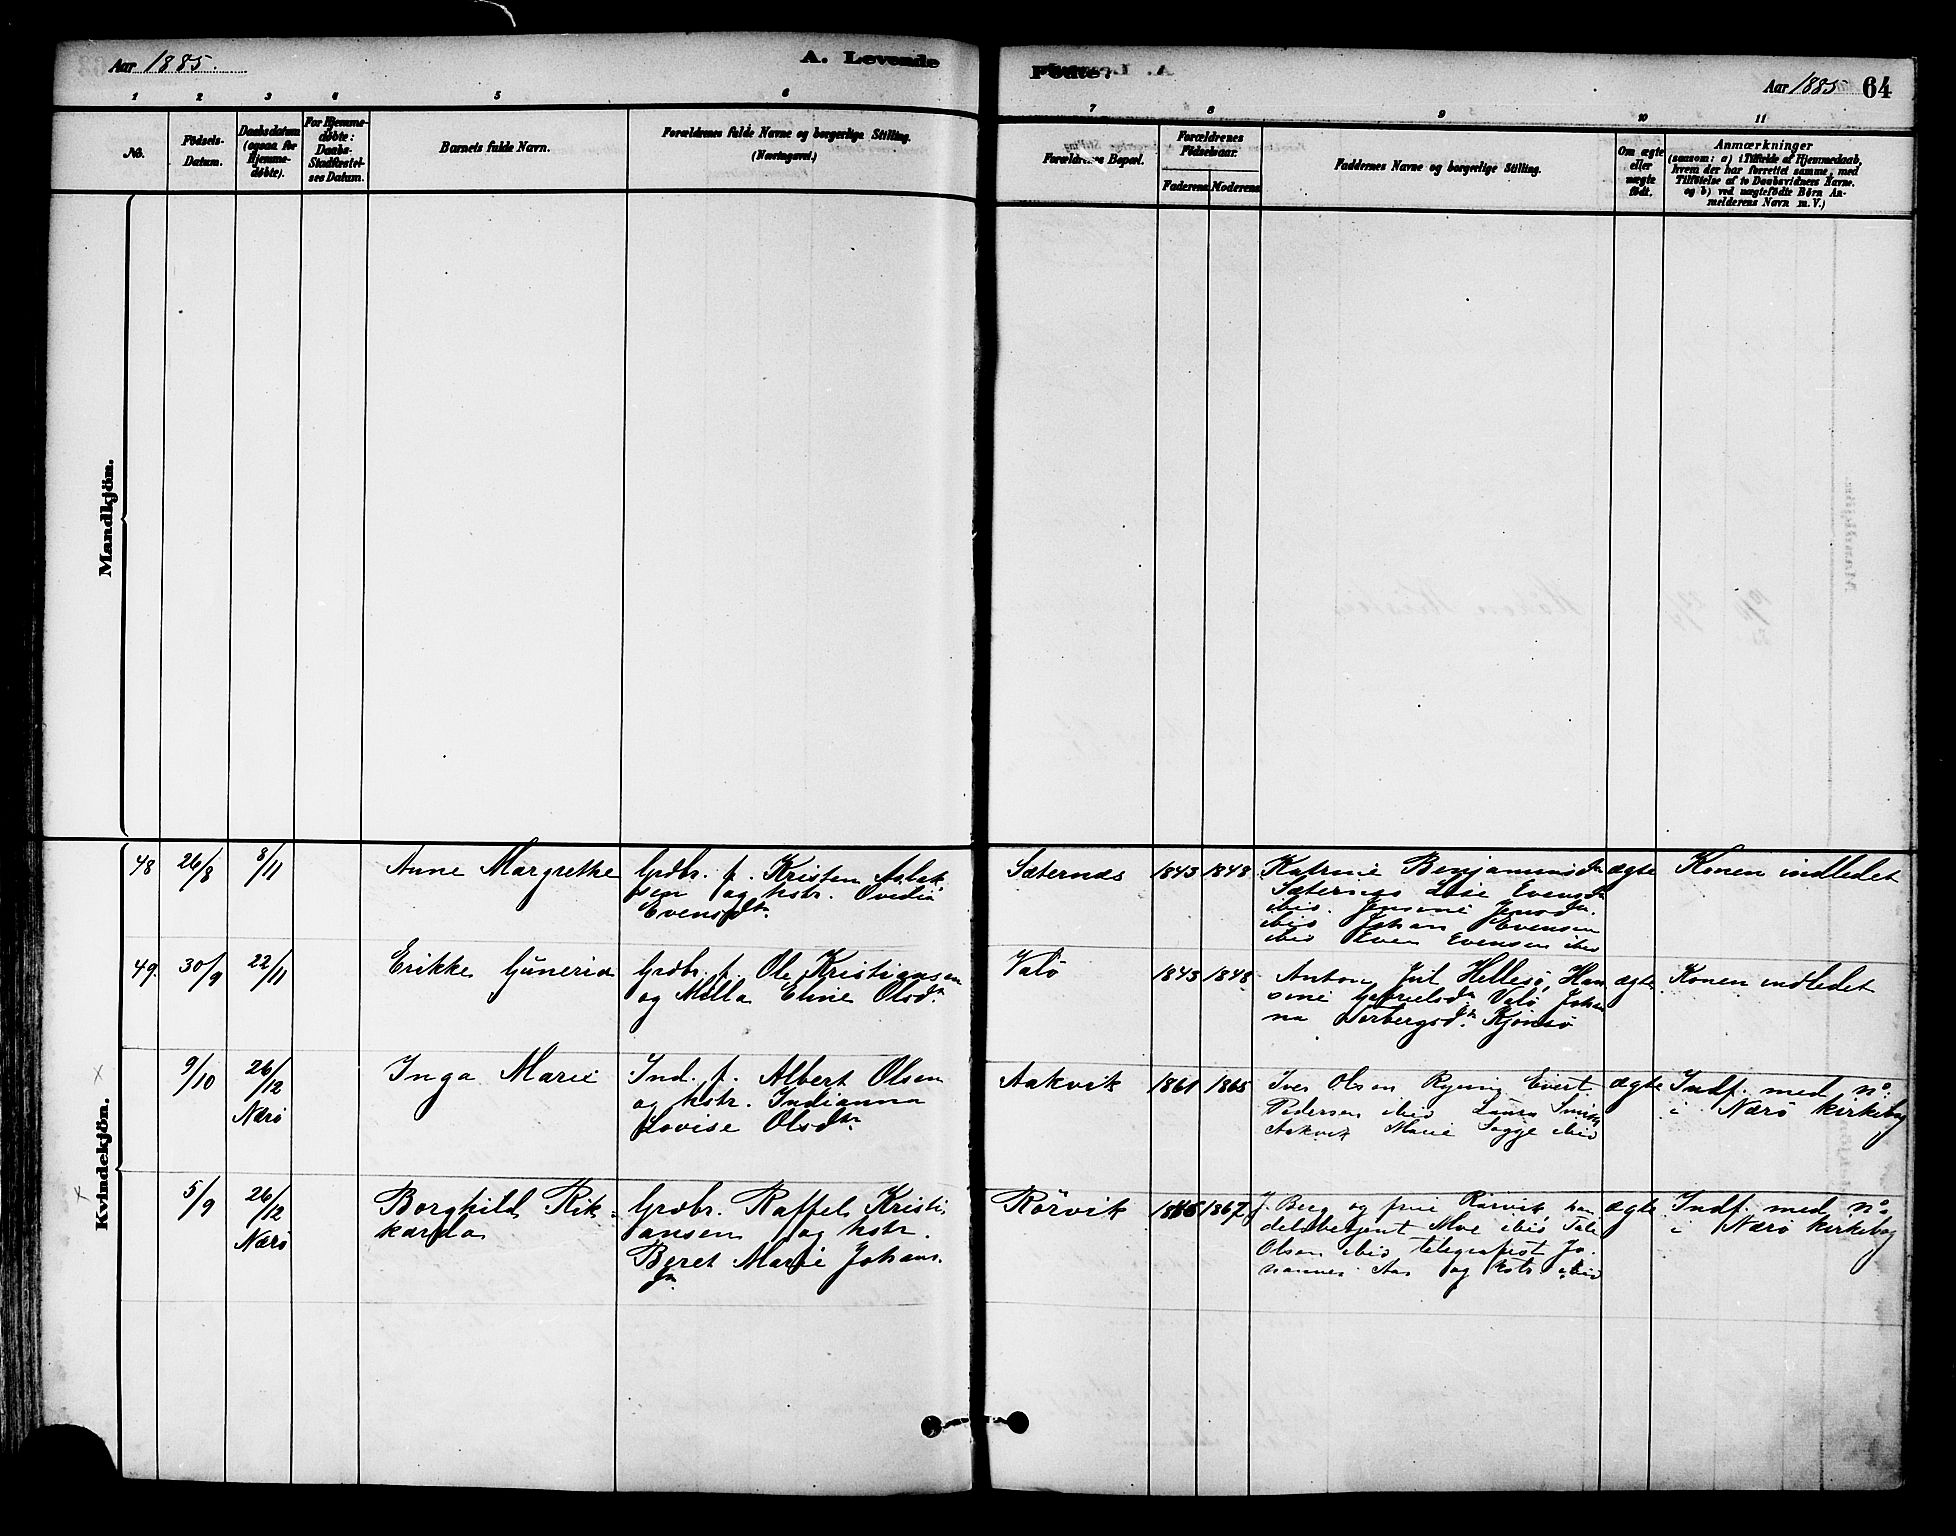 Aar 1885.
A. Levende
Fødte.
Aar 1885
64
1 2 3 4 5 6 7 8 9 10 11
No.
Födsels-
Datum.
Daabsdatum
(ogsaa for
Hjemme-
døbte).
For Hjemme-
døbte:
Daabs-
Stadfæstel-
ses Datum.
Barnets fulde Navn.
Forældrenes fulde Navne og borgerlige Stilling.
(Næringsvei.)
Forældrenes Bopæl.
Forældrenes
Födselsaar.
Faderens Moderens
Faddernes Navne og borgerlige Stilling.
Om ægte
eller
uægte
født.
Anmærkninger
(saasom: a) i Tilfælde af Hjemmedaab,
hvem der har forrettet samme, med
Tilføielse af to Daabsvidners Navne.
og b) ved uægtefødte Børn An-
melderens Navn m. V.)
Mandkjön.
Kvindekjön.
48 26/8 8/11
Anne Margrethe
Grdbr. f. Kristen Aslak
sen og hstr. Ovedia
Evensdtr.
Sæternæs
1843 1848
Katrine Benjaminsdtr
Sæternæs Lise Evensdtr
ibid. Jensine Jensdtr.
ibid Johan Evensen
ibid Even Evensen ibid
ægte
Konen indledet
49. 30/9 22/11
Erikke Guneria
Grdbr. f. Ole Kristiansen
og Milla Eline Olsdtr.
Valö
1843 1848
Anton Jul Hellesö, Han
sine Gabrielsdtr Valö Johan
na Norbergsdtr. Kjönsö
ægte
Konen indledet
9/10 26/12
Nærö
Inga Marie
Ind. f. Albert Olsen
og hstr. Indianna
Lovise Olsdtr.
Aakvik
1861 1865
Iver Olsen Ryning Evert
Pedersen ibid Laura
Aakvik Marie Sagge ibid
ægte
Indf. med no
i Nærö kirkebog
5/9 26/12
Nærö
Borghild Rik
karda
Grdbr. Raffel Kristi
ansen og hstr.
Beret Marie Johans
dtr.
Rörvik
1867
J. Berg og frue Rörvik, han
delsbetjent Moe ibid
Olsen ibid telegrafist Jo
hannes Aas og hstr ibid
ægte
Indf. med no
i Nærö kirkebog